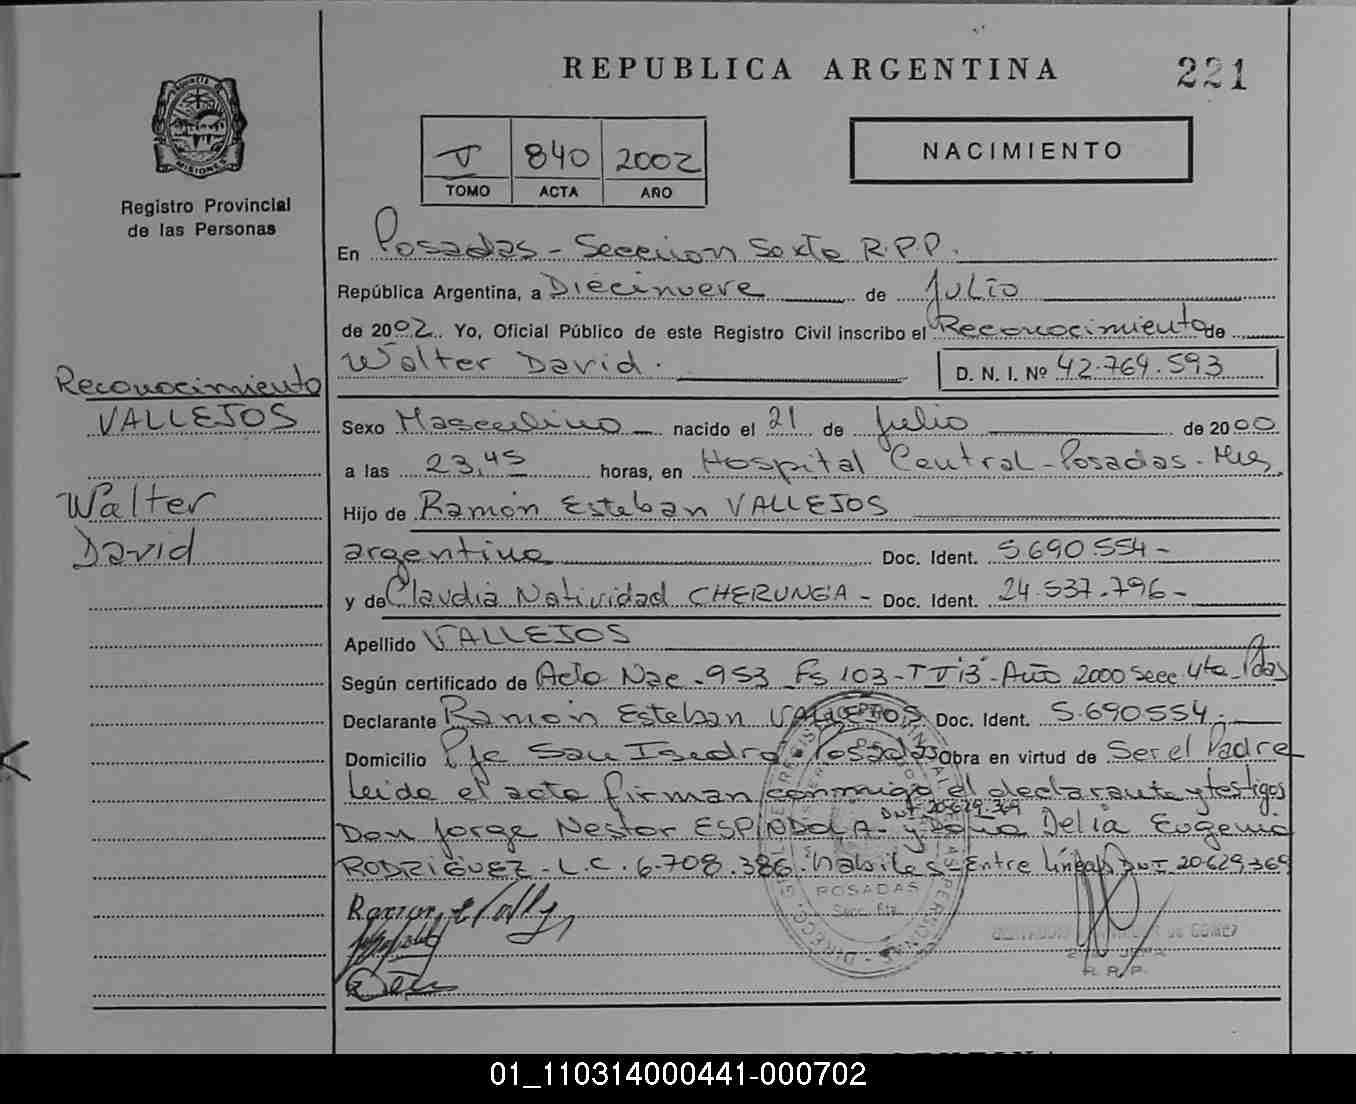 REPUBLICA ARGENTINA
221
MISIONES
Registro Provincial
de las Personas
V 840 2002
TOMO ACTA AÑO
NACIMIENTO
En Posadas - Seccion Sexta R.P.P.
República Argentina, a Diecinueve de Julio
de 2002. Yo, Oficial Público de este Registro Civil inscribo el Reconocimiento de
Walter David.
D. N. I. Nº 42.769.593
Reconocimiento
VALLEJOS
Walter
David
Sexo Masculino nacido el 21 de Julio de 2000
a las 23,45 horas, en Hospital Central - Posadas - Mnes.
Hijo de Ramón Esteban VALLEJOS
argentino Doc. Ident. 5.690.554 -
y de Claudia Natividad CHERUNGA - Doc. Ident. 24.537.796 -
Apellido VALLEJOS
Según certificado de Acta Nac. 953 Fs 103 - Año 2000 Secc. 4ta Pdas
Declarante Ramón Esteban VALLEJOS Doc. Ident. 5.690.554.
Domicilio Pje San Isidro - Posadas Obra en virtud de Ser el Padre
Leida el acta firman conmigo el declarante y testigos
DNI 20.629.369
Don Jorge Nestor ESPINDOLA - y Doña Delia Eugenia
RODRIGUEZ - L.C. 6.708.386. habiles - Entre líneas DNI 20.629.369
POSADAS
Secc. 6ta.
R. P. P.
01_110314000441-000702